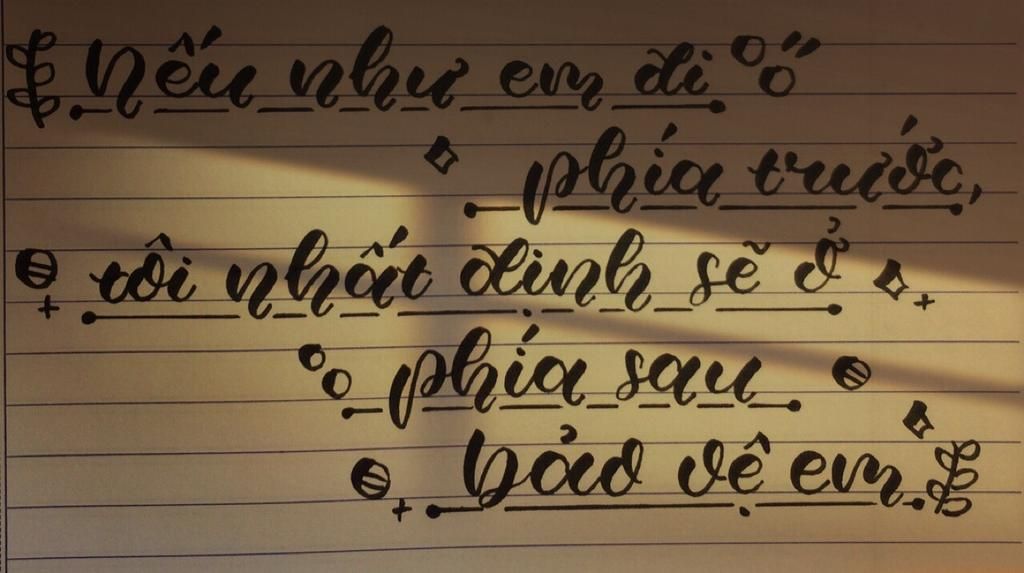 Nếu như em đi
phía trước,
tôi nhất định sẽ ở
phía sau
bảo vệ em.